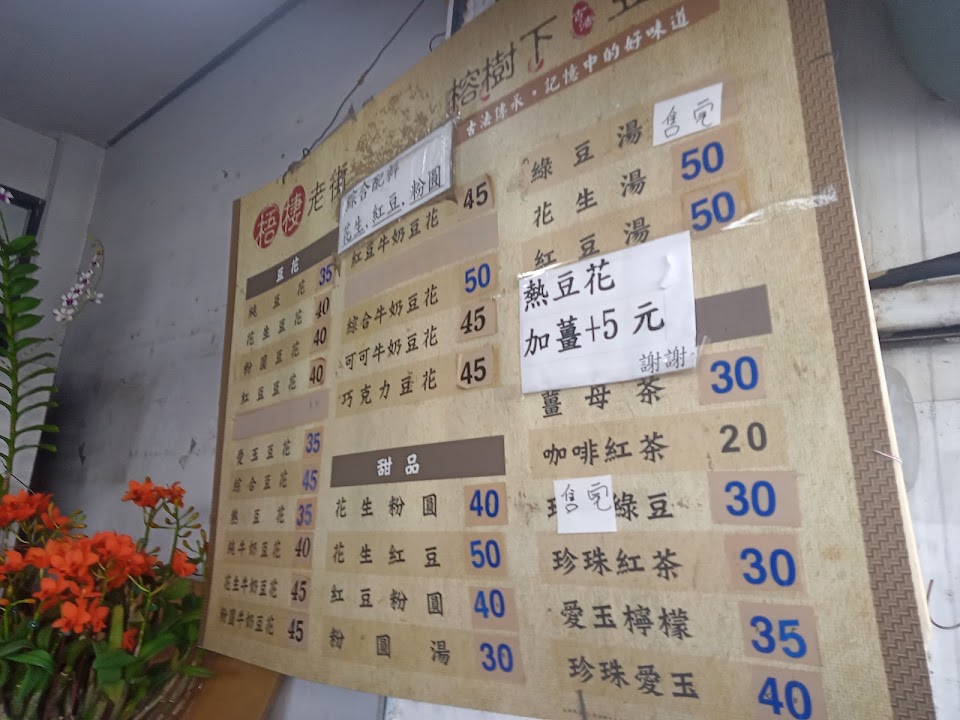 榕樹下
古法
古法傳承·記憶中的好味道
梧棲老街
綜合配料
花生、紅豆、粉圓
豆花
純豆花 35
花生豆花 40
粉圓豆花 40
紅豆豆花 40
愛玉豆花 35
綜合豆花 45
熱豆花 35
純牛奶豆花 40
花生牛奶豆花 45
粉圓牛奶豆花 45
紅豆牛奶豆花 45
綜合牛奶豆花 50
可可牛奶豆花 45
巧克力豆花 45
甜品
花生粉圓 40
花生紅豆 50
紅豆粉圓 40
粉圓湯 30
綠豆湯 售完
花生湯 50
紅豆湯 50
熱豆花
加薑+5元
謝謝
薑母茶 30
咖啡紅茶 20
售完 綠豆 30
珍珠紅茶 30
愛玉檸檬 35
珍珠愛玉 40